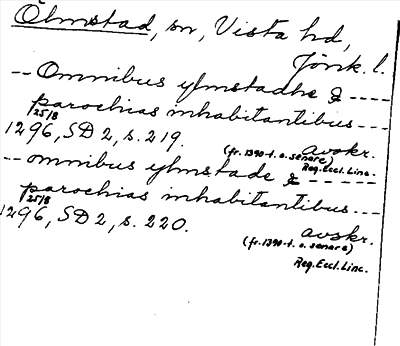 Ölmstad, sn, Vista hd,
Jönk. l.
-- Omnibus ylmstadhe & ----
parochias inhabitantibus ---
1296, 25/8 SD 2, s. 219. avskr.
(fr. 1390-t. o. senare)
Reg. Eccl. Linc.
-- omnibus ylmstade & -----
parochias inhabitantibus ---
1296, 25/8 SD 2, s. 220. avskr.
(fr. 1390-t. o. senare)
Reg. Eccl. Linc.